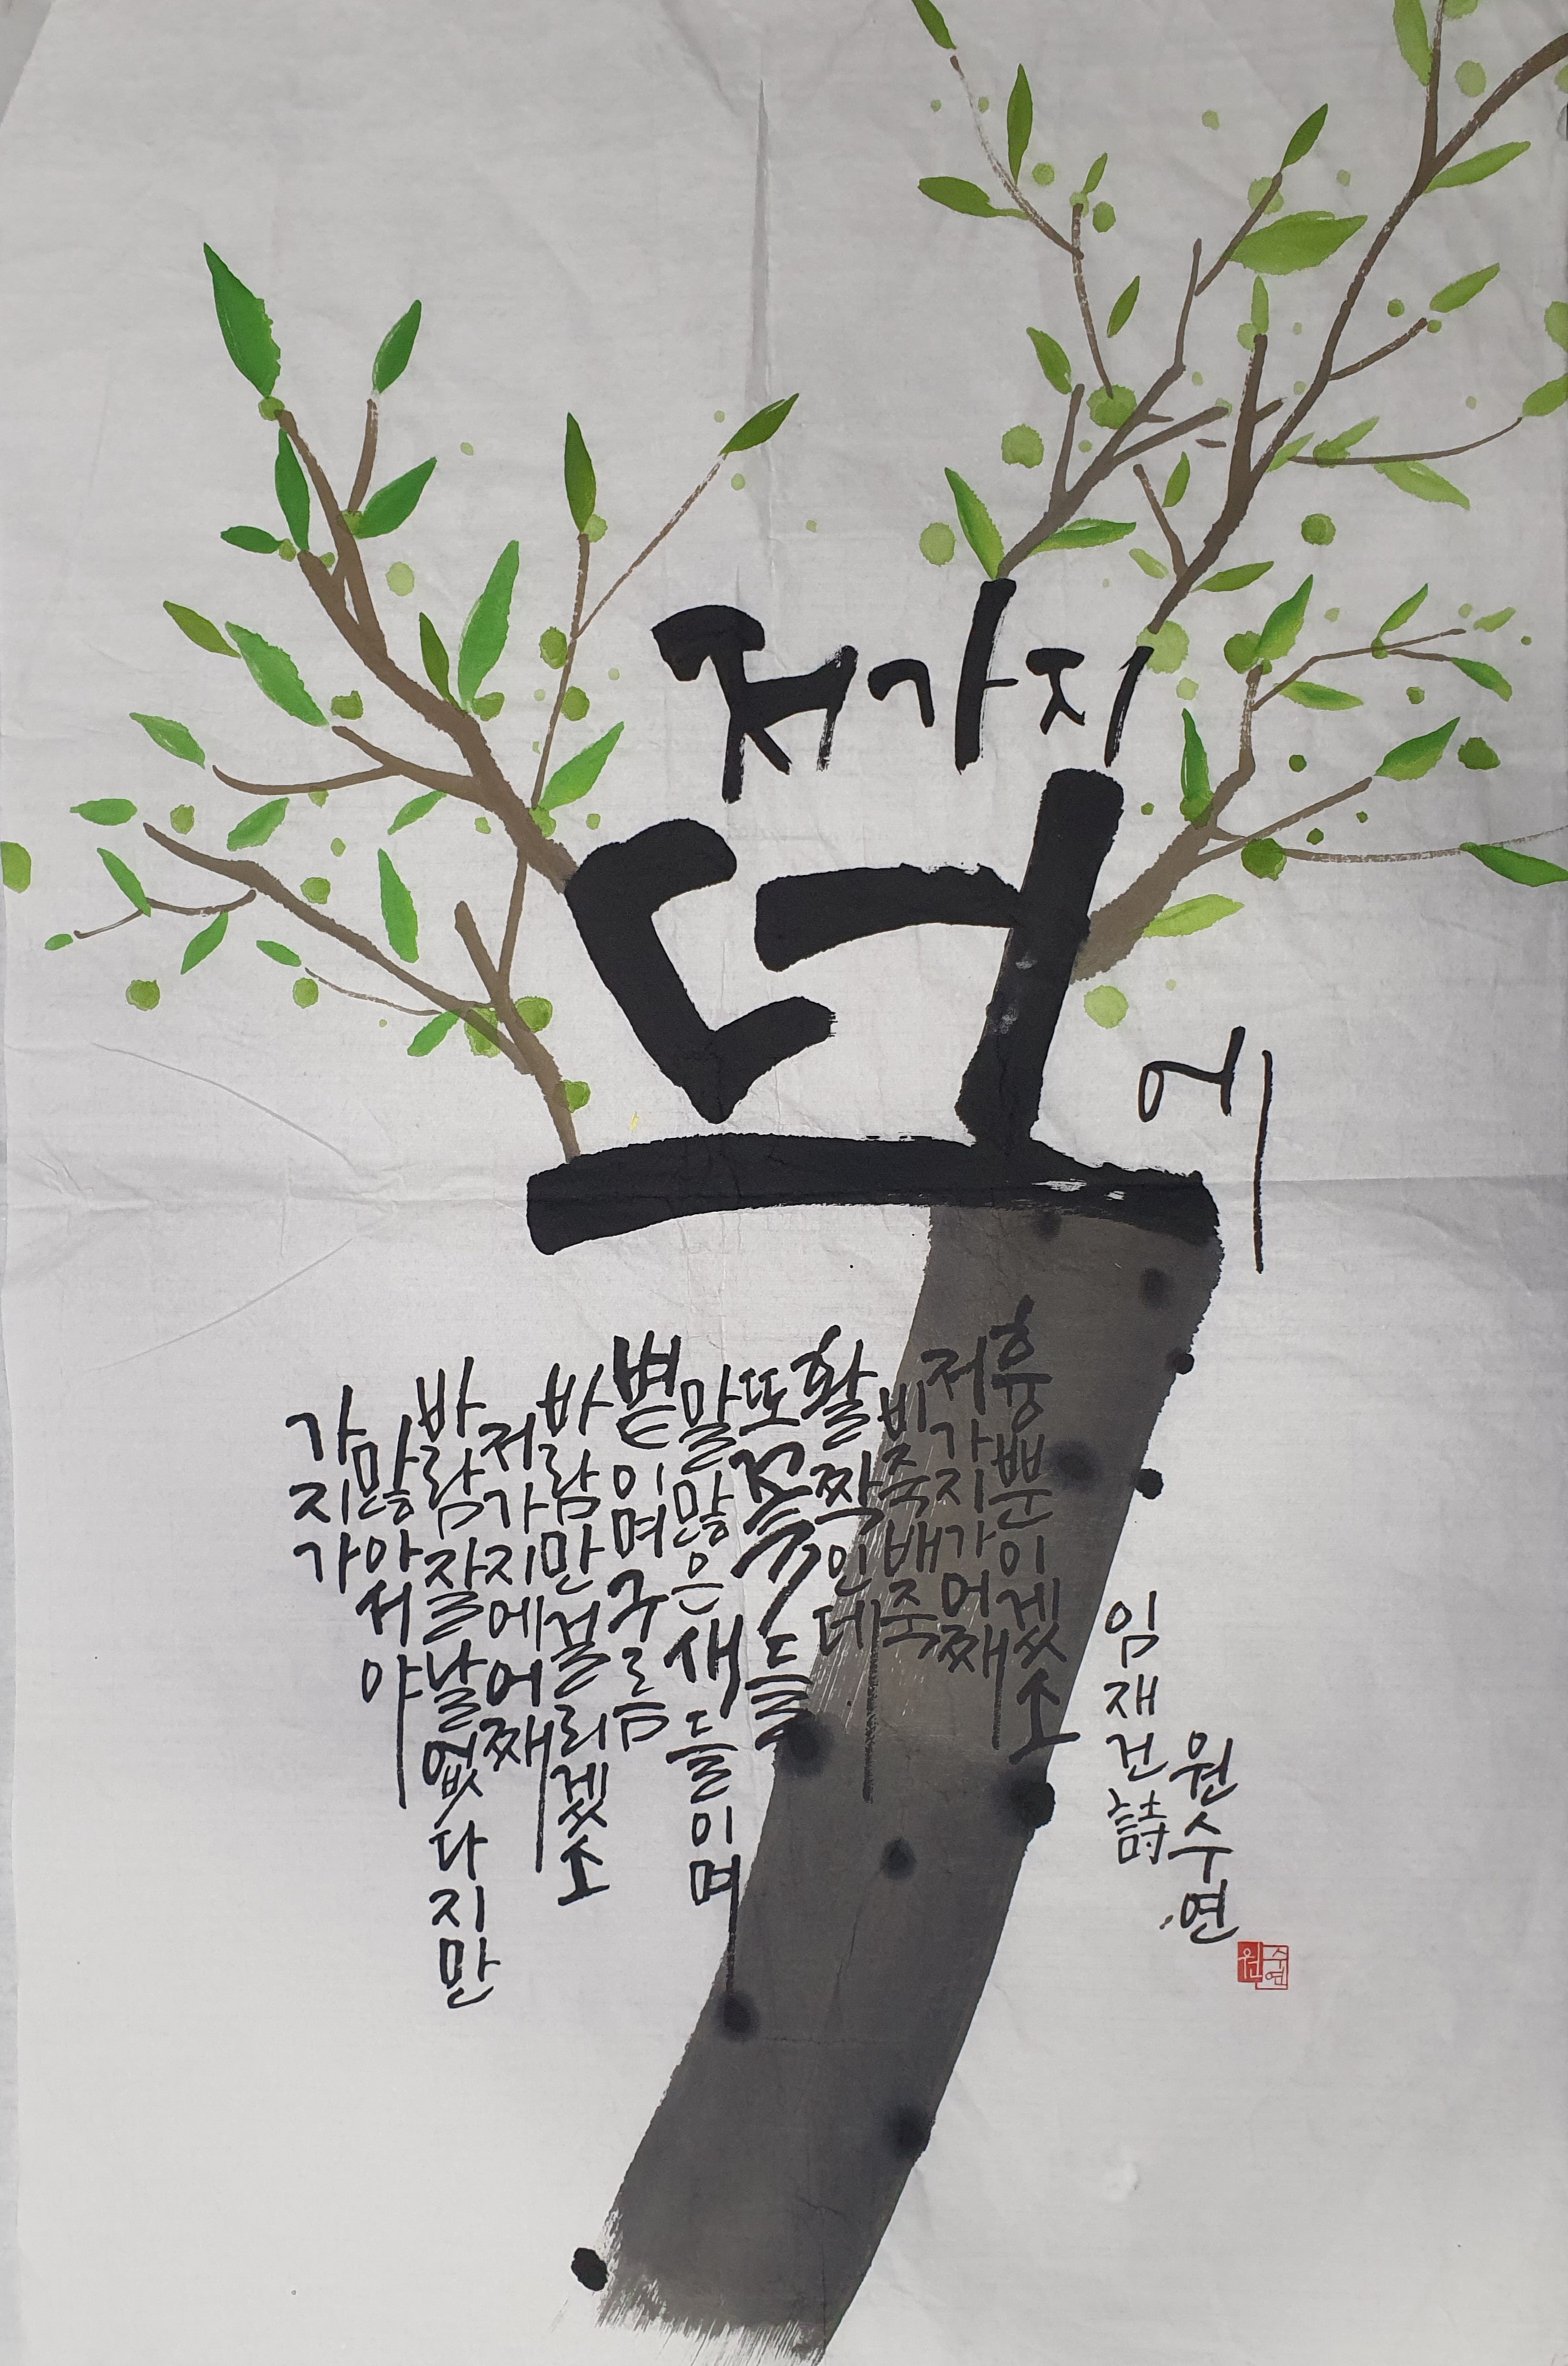 저가지
덕
에
흉뿐이겠소
저가지가어째
비죽배죽
활짝인데
또 들
말많은새들이며
볕이며구름
바람만걸리겠소
저가지에어째
바람잘날없다지만
많아서야
가지가
임재건詩
원수연
원수연